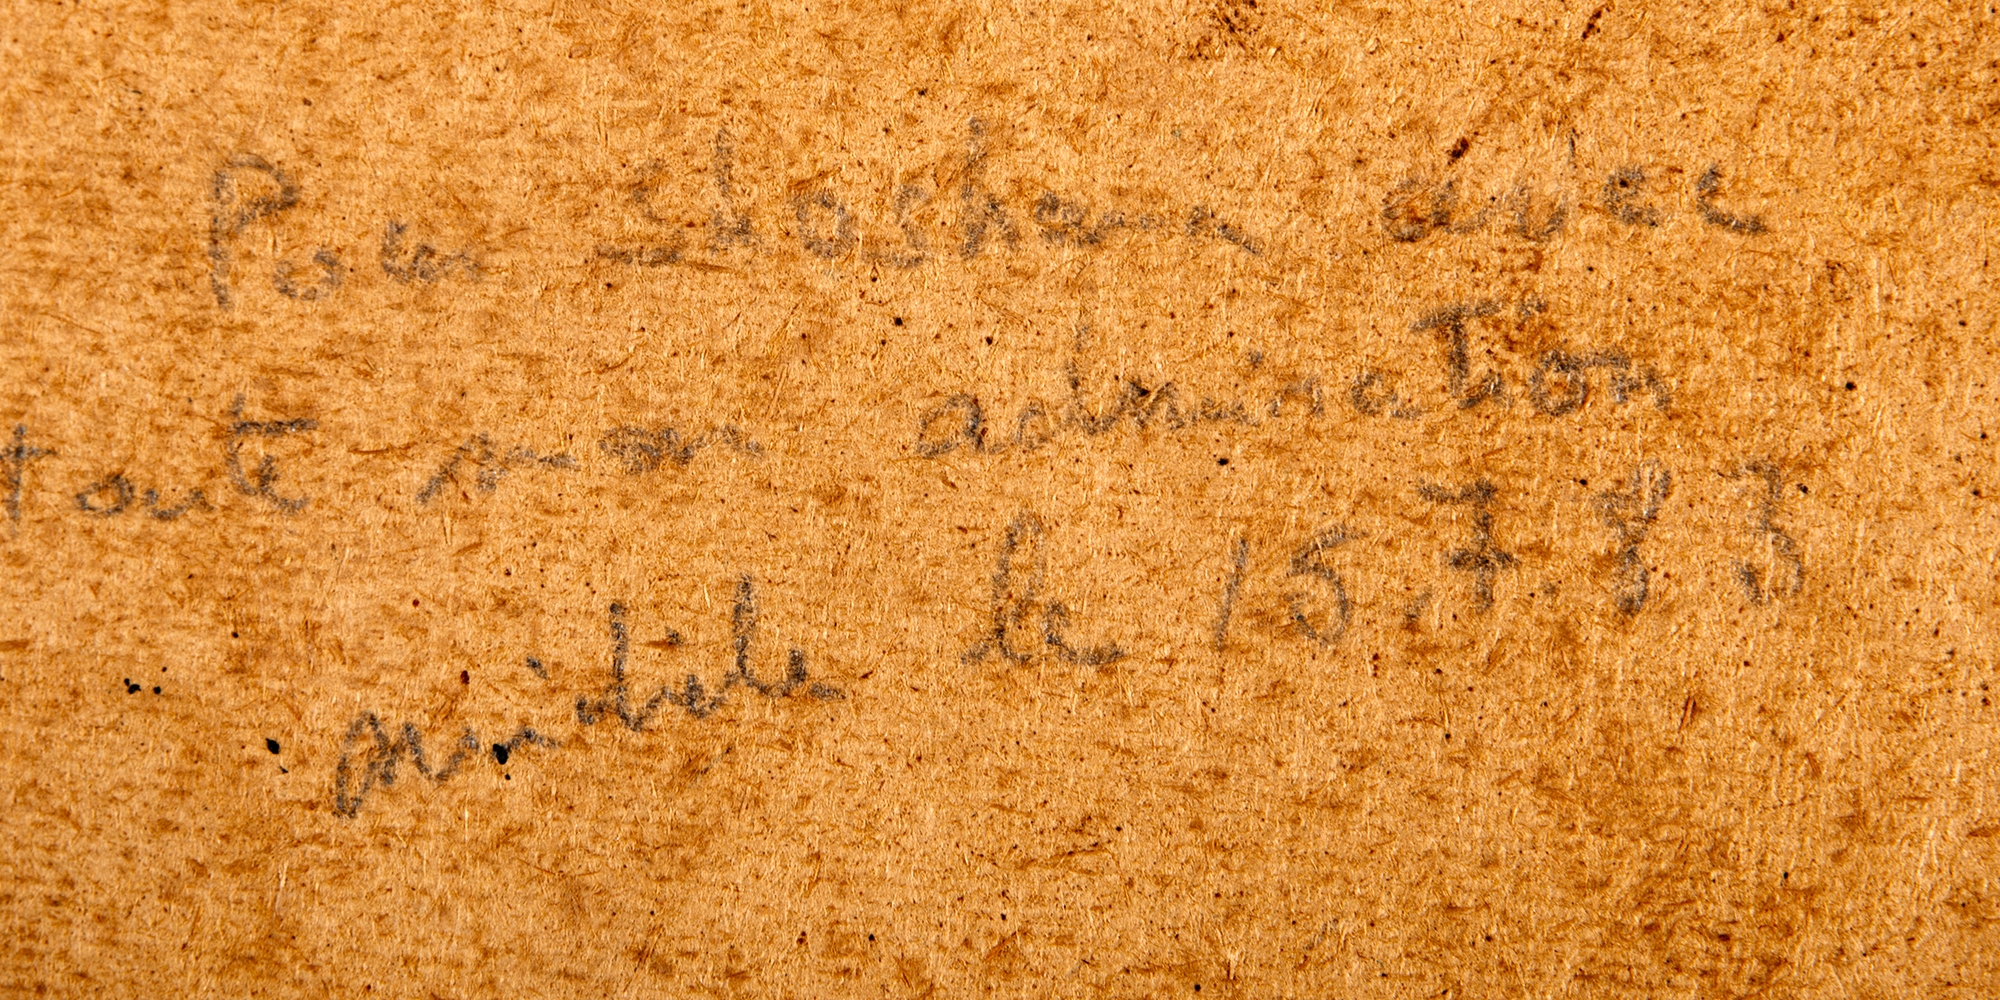 Pour Shosham avec
toute mon admiration
le 15.7.83